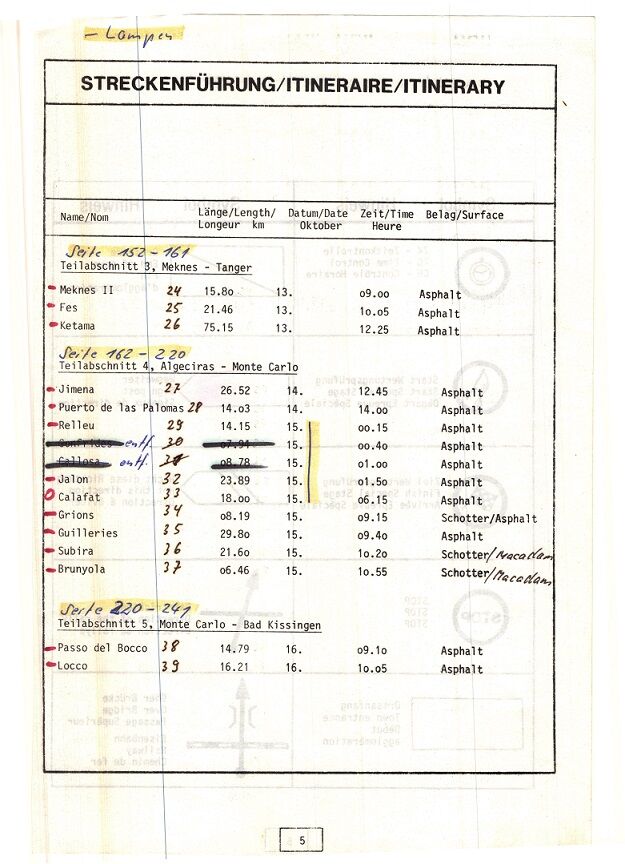 - Lampen
STRECKENFÜHRUNG/ITINERAIRE/ITINERARY
Name/Nom Länge/Length/ Datum/Date Zeit/Time Belag/Surface
Longeur km Oktober Heure
Seite 152-161
Teilabschnitt 3, Meknes - Tanger
Meknes II 24 15.8o 13. o9.oo Asphalt
Fes 25 21.46 13. 1o.o5 Asphalt
Ketama 26 75.15 13. 12.25 Asphalt
Seite 162-220
Teilabschnitt 4, Algeciras - Monte Carlo
Jimena 27 26.52 14. 12.45 Asphalt
Puerto de las Palomas 28 14.o3 14. 14.oo Asphalt
Relleu 29 14.15 15. oo.15 Asphalt
Confrides entf. 30 o7.94 15. oo.4o Asphalt
Callosa entf. 31 o8.78 15. o1.oo Asphalt
Jalon 32 23.89 15. o1.5o Asphalt
Calafat 33 18.oo 15. o6.15 Asphalt
Grions 34 o8.19 15. o9.15 Schotter/Asphalt
Guilleries 35 29.8o 15. o9.4o Asphalt
Subira 36 21.6o 15. 1o.2o Schotter/Macadam
Brunyola 37 o6.46 15. 1o.55 Schotter/Macadam
Seite 220-241
Teilabschnitt 5, Monte Carlo - Bad Kissingen
Passo del Bocco 38 14.79 16. o9.1o Asphalt
Locco 39 16.21 16. 1o.o5 Asphalt
5